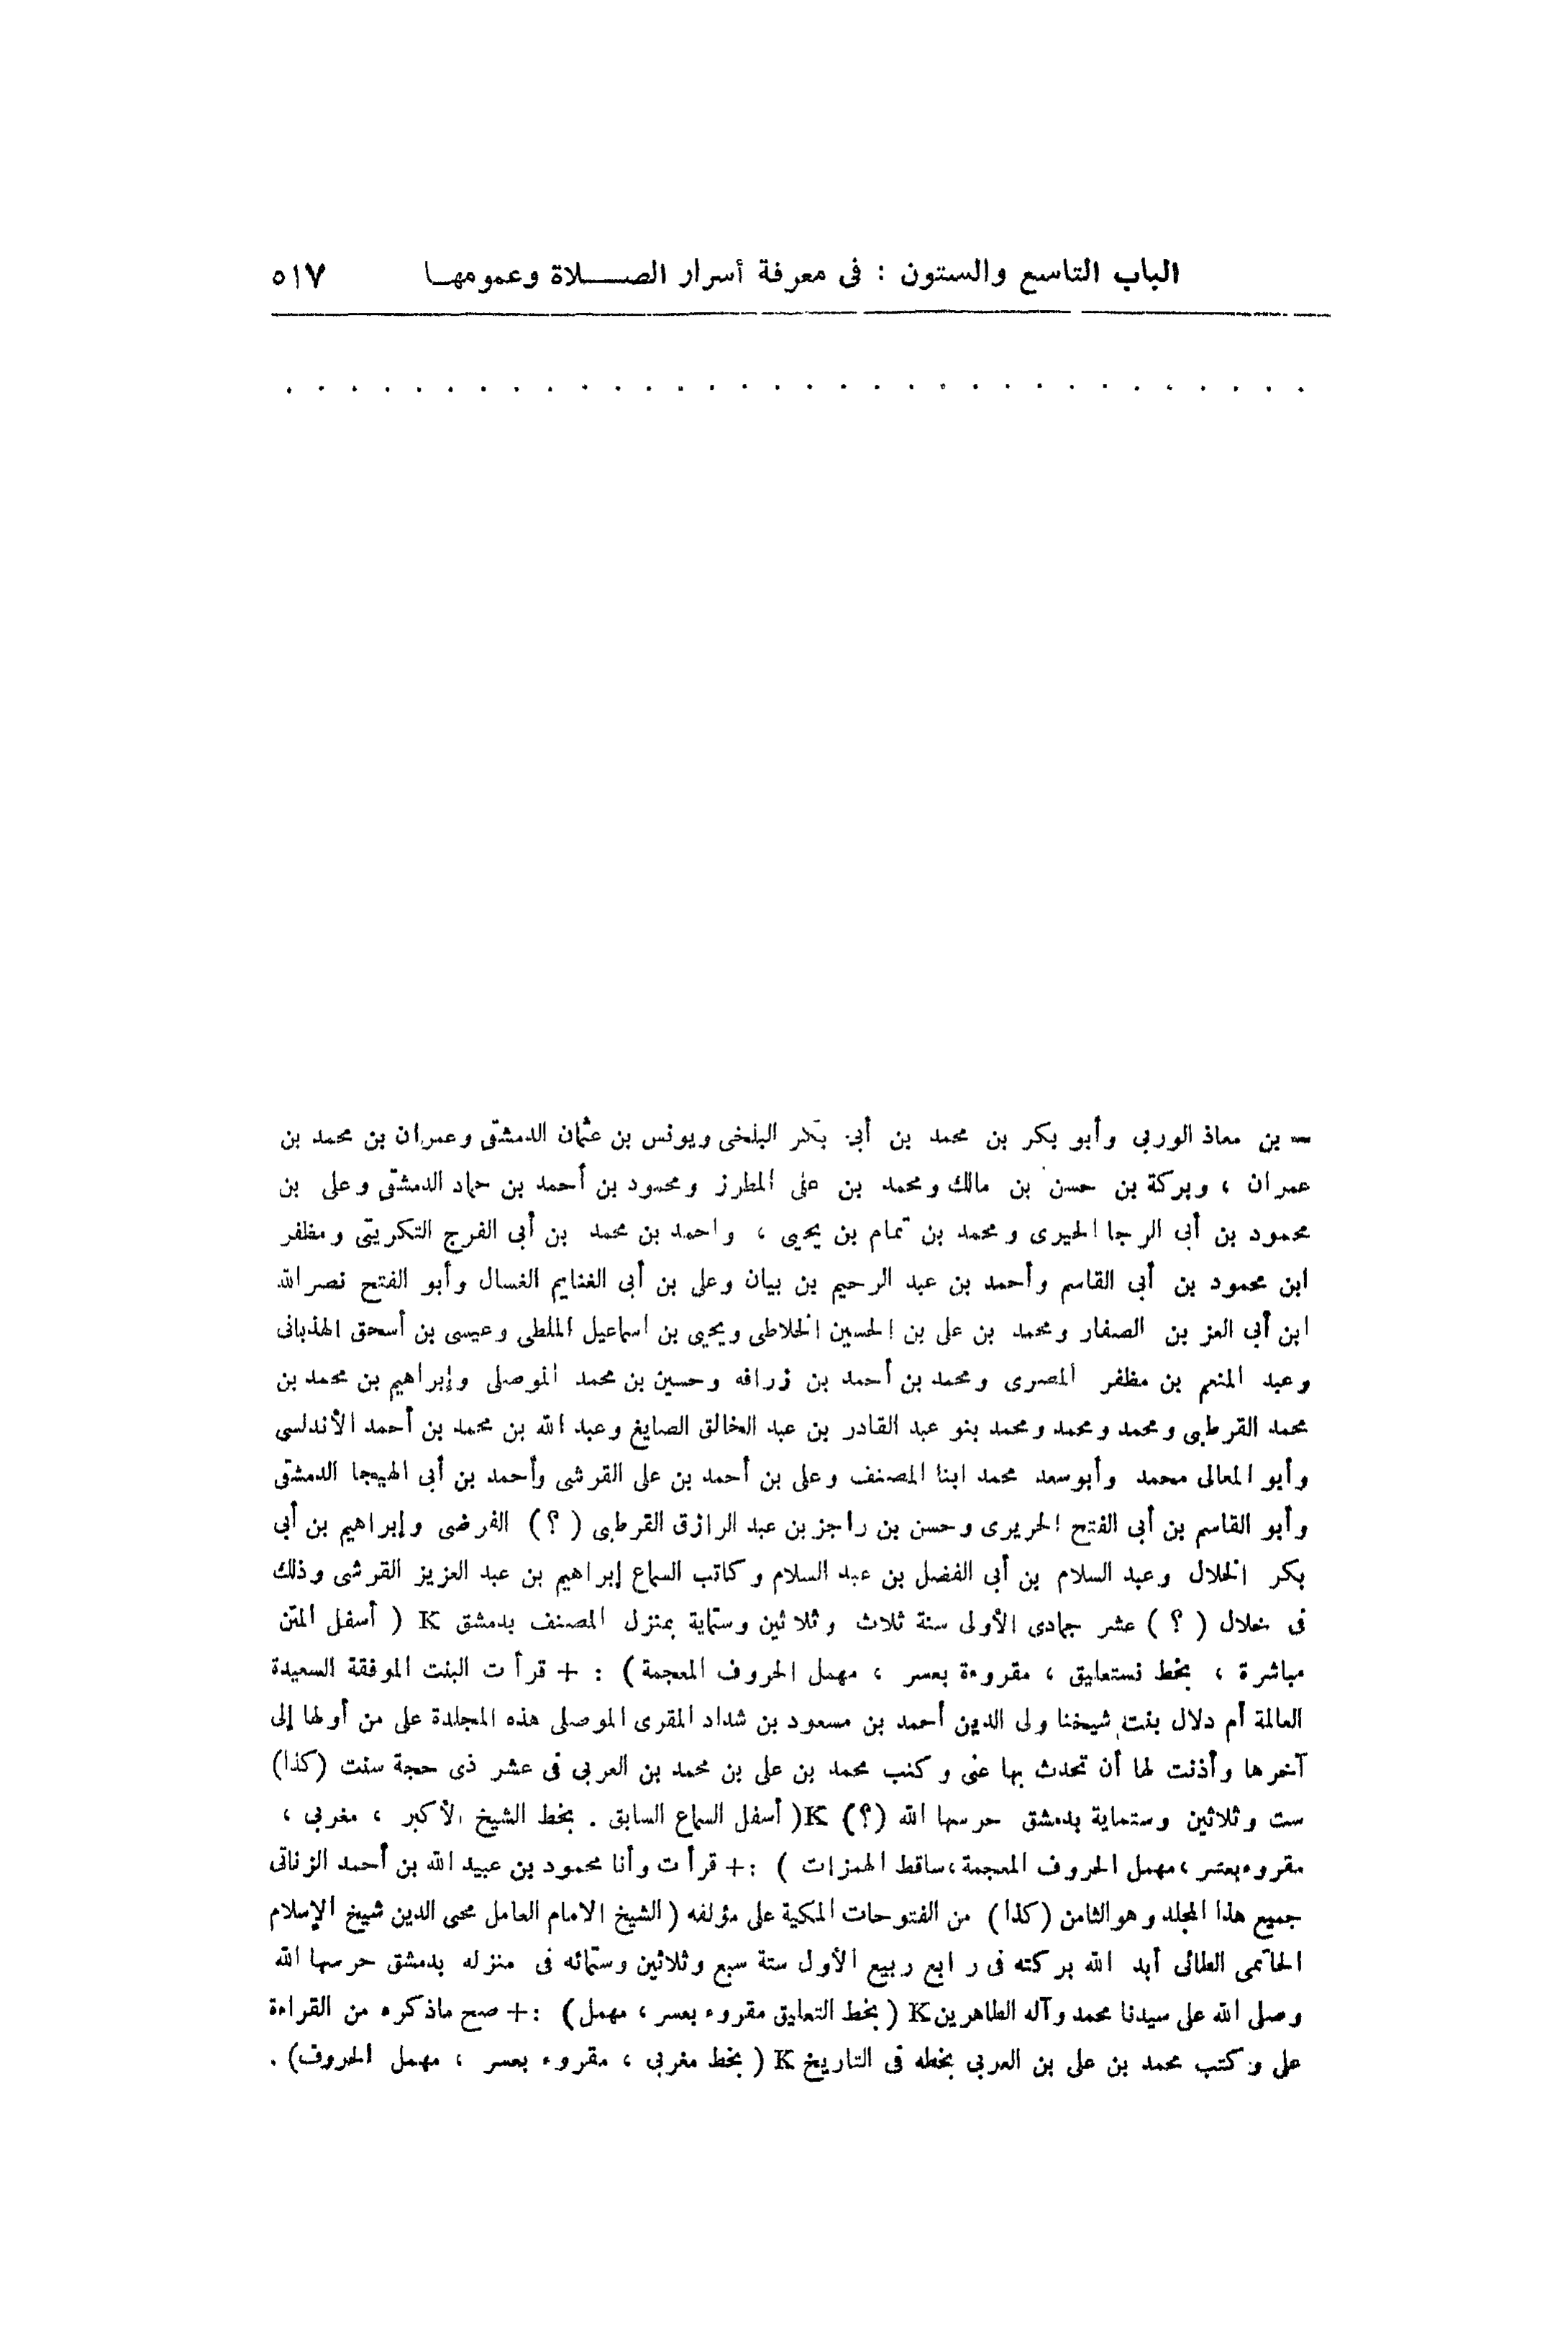 الباب التاسع والستون : فى معرفة أسرار الصــــلاة وعمومها ٥١٧
. . . . . . . . . . . . . . . . . . . . . . . . . . . . . . . .
= بن معاذ الوربى وأبو بكر بن محمد بن أبى بكر البلخى ويونس بن عثمان الدمشقى وعمران بن محمد بن
عمران ، وبركة بن حسن بن مالك ومحمد بن على المطرز ومحمود بن أحمد بن حماد الدمشقى وعلى بن
محمود بن أبى الرجا الحيرى ومحمد بن تمام بن يحيى ، واحمد بن محمد بن أبى الفرج التكريتى ومظفر
ابن محمود بن أبى القاسم وأحمد بن عبد الرحيم بن بيان وعلى بن أبى الغنايم الغسال وأبو الفتح نصر الله
ابن أبى العز بن الصفار ومحمد بن على بن الحسين الخلاطى ويحيى بن اسماعيل الملطى وعيسى بن أسحق الهذبانى
وعبد المنعم بن مظفر المصرى ومحمد بن أحمد بن زرافه وحسين بن محمد الموصلى وإبراهيم بن محمد بن
محمد القرطبى ومحمد ومحمد ومحمد بنو عبد القادر بن عبد الخالق الصايغ وعبد الله بن محمد بن أحمد الأندلسى
وأبو المعالى محمد وأبوسعد محمد ابنا المصنف وعلى بن أحمد بن على القرشى وأحمد بن أبى الهيجا الدمشقى
وأبو القاسم بن أبى الفتح الحريرى وحسن بن راجز بن عبد الرازق القرطبى ( ؟ ) الفرضى وإبراهيم بن أبى
بكر الخلال وعبد السلام بن أبى الفضل بن عبد السلام وكاتب السماع إبراهيم بن عبد العزيز القرشى وذلك
فى خلال ( ؟ ) عشر جمادى الأولى سنة ثلاث وثلاثين وستماية بمنزل المصنف بدمشق K ( أسفل المتن
مباشرة ، بخط نستعليق ، مقروءة بعسر ، مهمل الحروف المعجمة ) : + قرأت البنت الموفقة السعيدة
العالمة أم دلال بنت شيخنا ولى الدين أحمد بن مسعود بن شداد المقرى الموصلى هذه المجلدة على من أولها إلى
آخرها وأذنت لها أن تحدث بها عنى وكتب محمد بن على بن محمد بن العربى فى عشر ذى حجة سنت (كذا)
ست وثلاثين وستماية بدمشق حرسها الله (؟) K( أسفل السماع السابق . بخط الشيخ الأكبر ، مغربى ،
مقروءبعسر ،مهمل الحروف المعجمة،ساقط الهمزات ) :+ قرأت وأنا محمود بن عبيد الله بن أحمد الزناتى
جميع هذا المجلد وهوالثامن (كذا) من الفتوحات المكية على مؤلفه ( الشيخ الامام العامل محيى الدين شيخ الإسلام
الحاتمى الطائى أبد الله بركته فى رابع ربيع الأول ستة سبع وثلاثين وستمائه فى منزله بدمشق حرسها الله
وصلى الله على سيدنا محمد وآله الطاهرين K ( بخط التعليق مقروء بعسر ، مهمل ) :+ صح ماذكره من القراءة
على وكتب محمد بن على بن العربى بخطه فى التاريخ K ( بخط مغربى ، مقروء بعسر ، مهمل الحروف) .